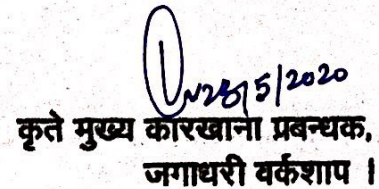 28/5/2020
कृते मुख्य कारखाना प्रबन्धक,
जगाधरी वर्कशाप ।